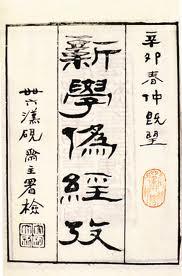 辛卯春仲既望
新學偽經攷
卅六漢硯齋主署檢